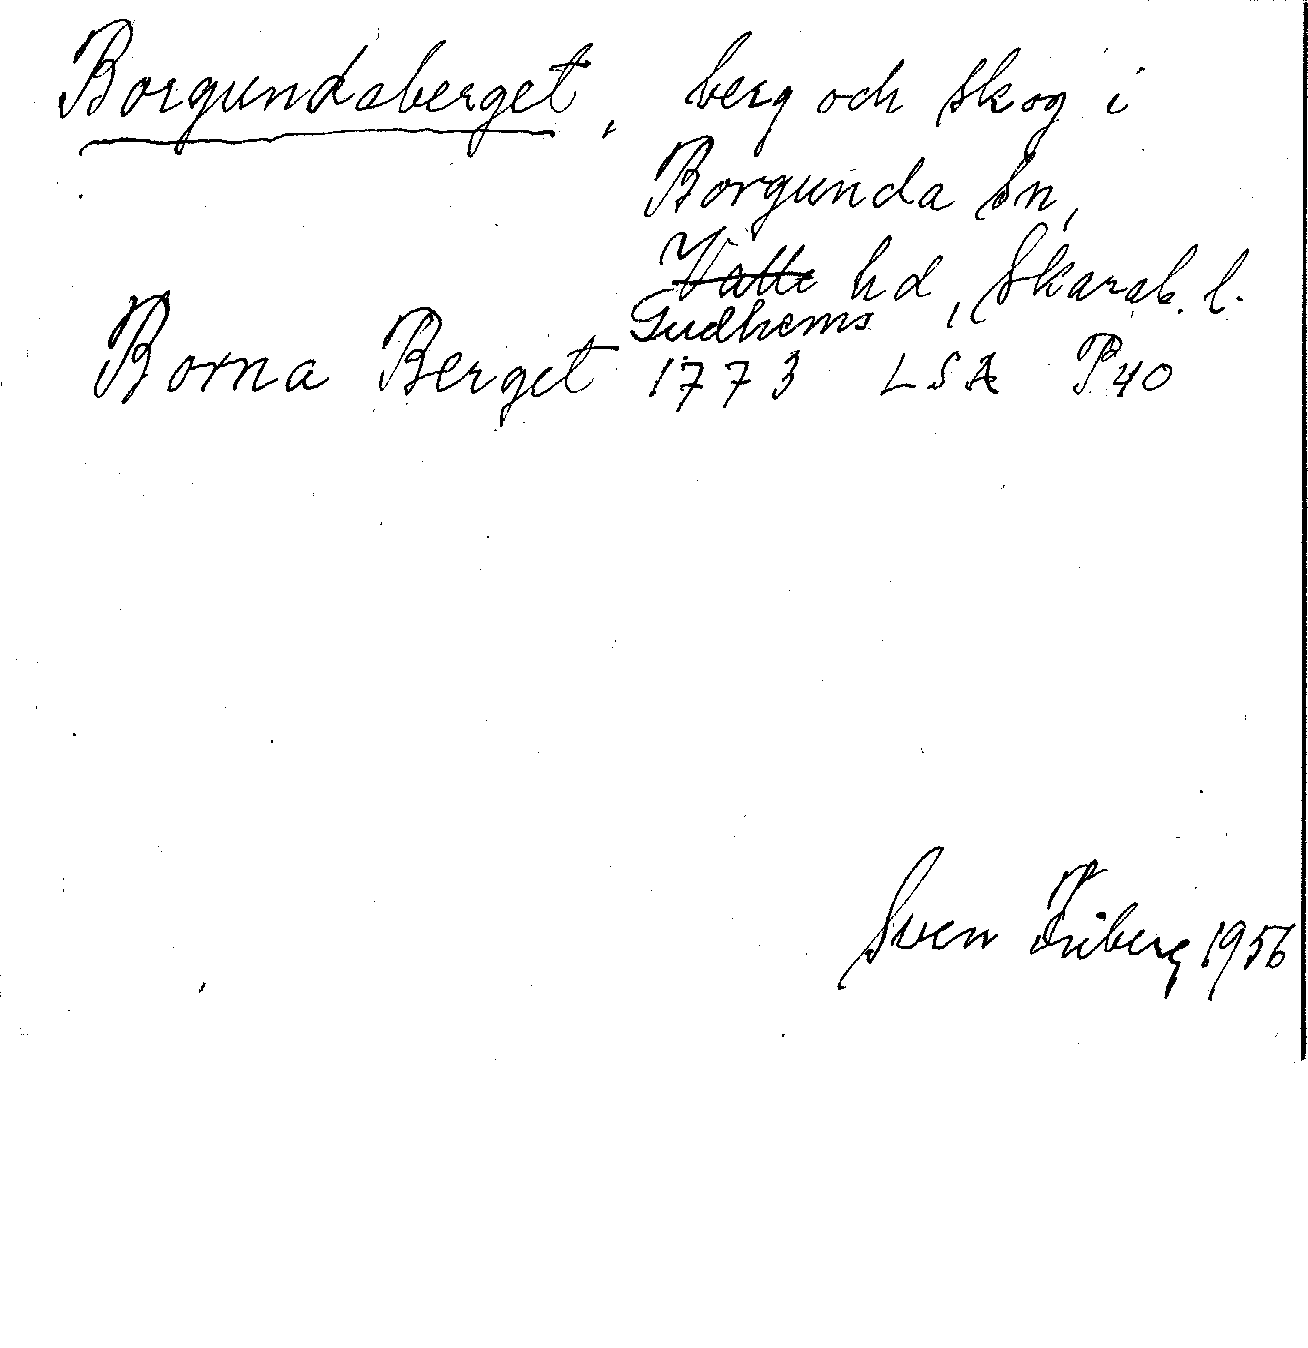 Borgundaberget, berg och skog i
Borgunda sn,
Valle hd, Skarab. l.
Gudhems
Borna Berget 1773 LSA P40
Sven Friberg 1956